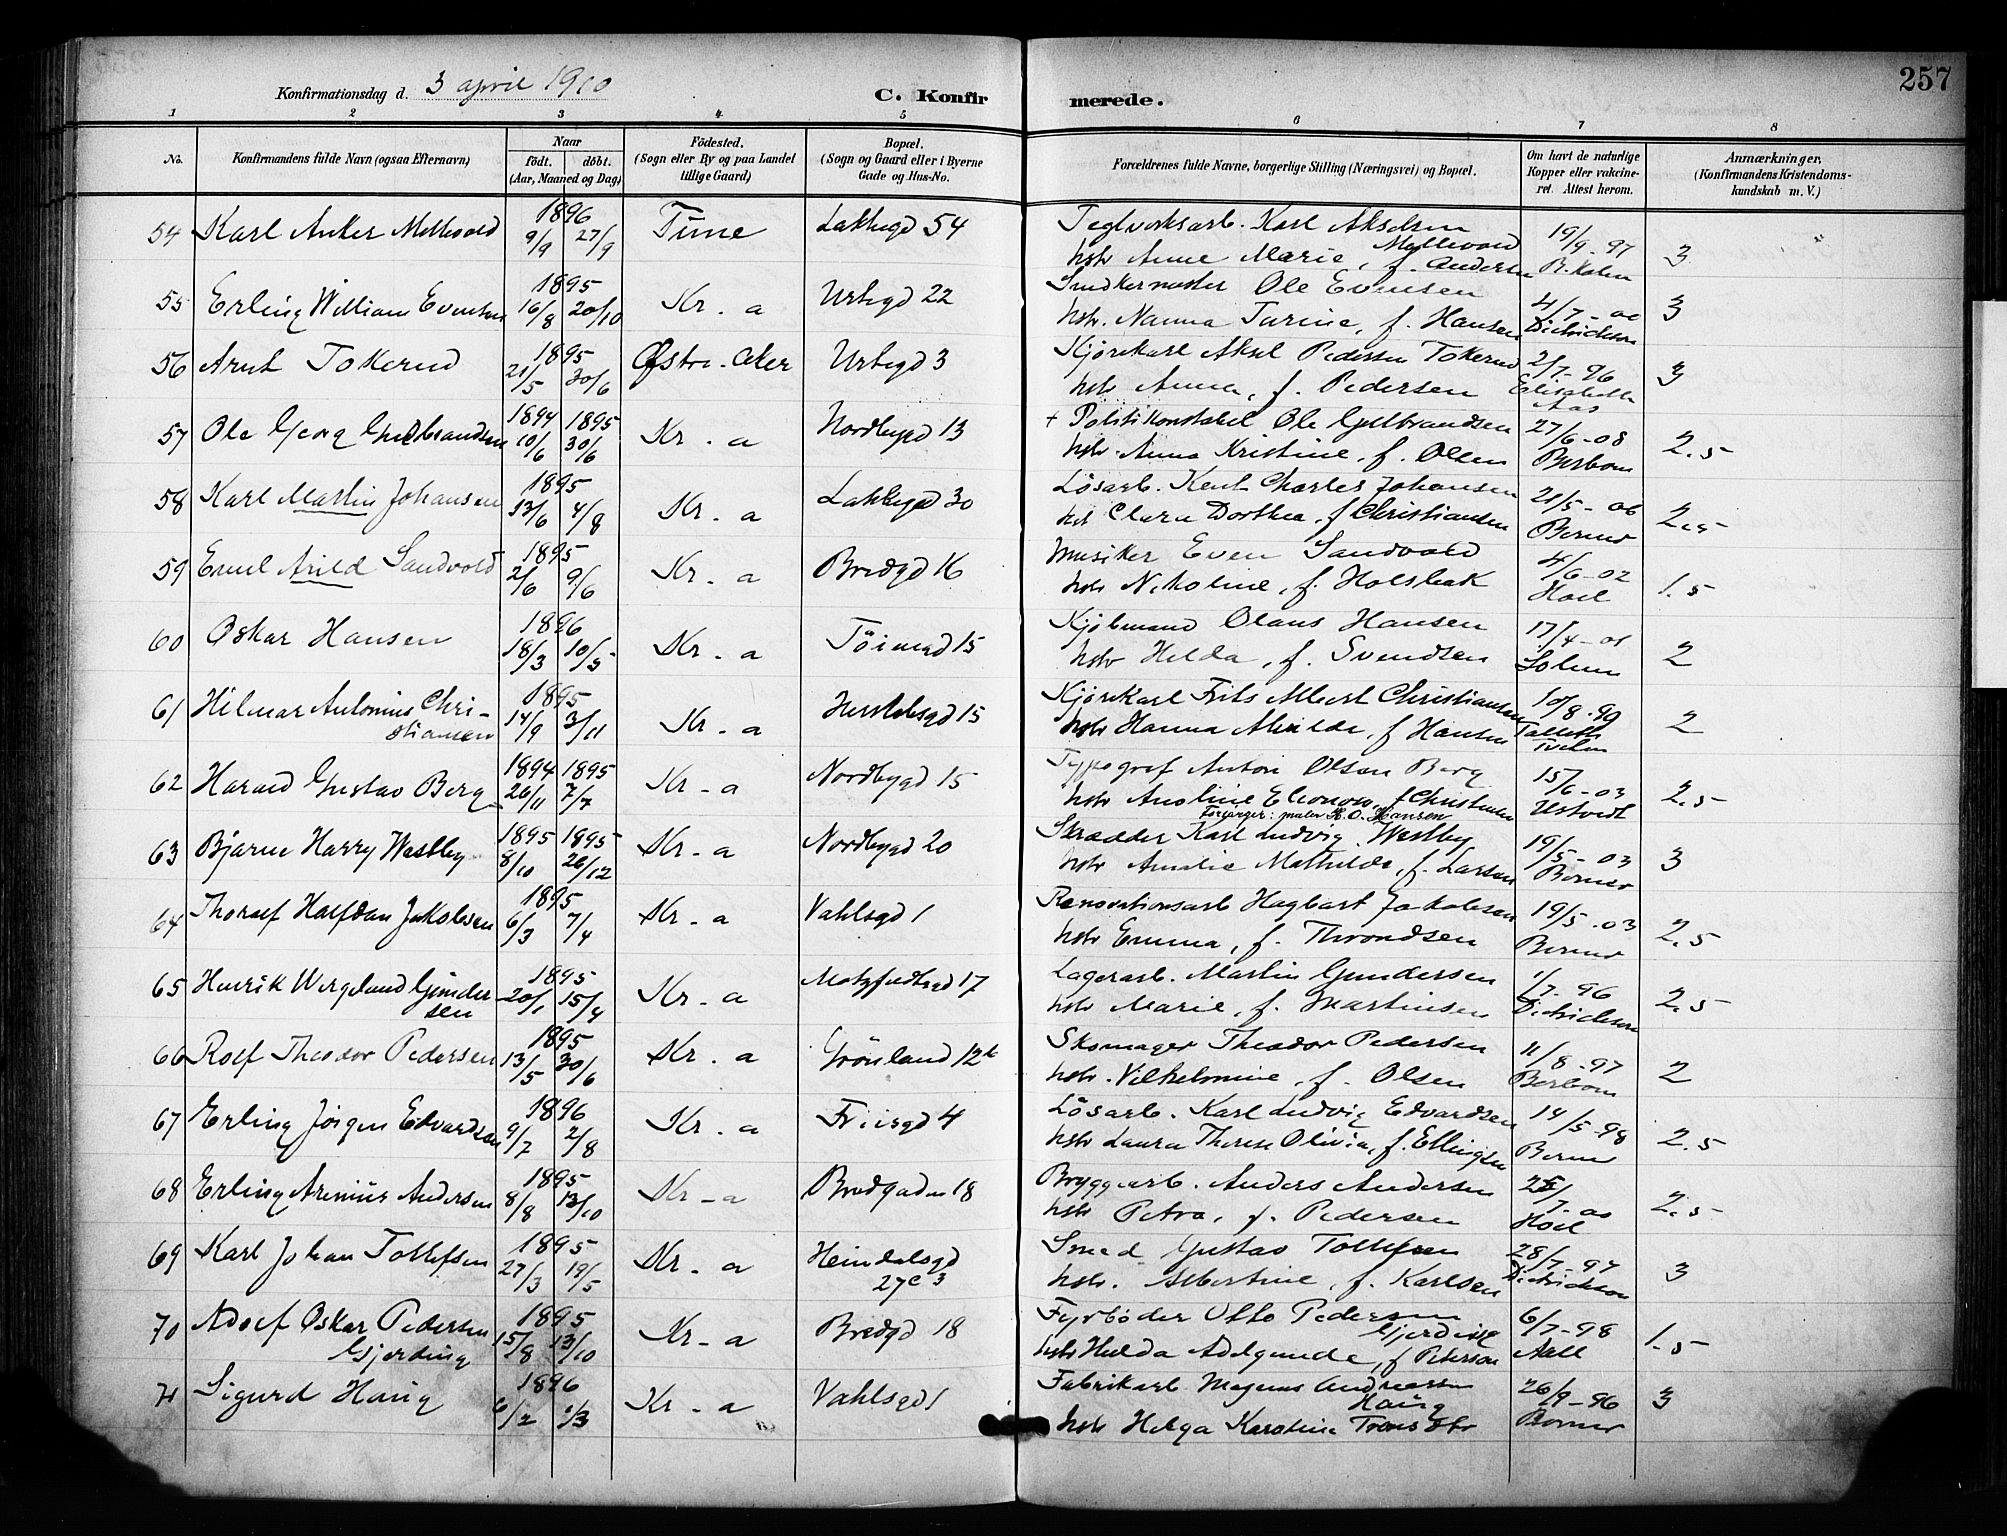 257
Konfirmationsdag d. 3 april 1910
C. Konfirmerede.
1 2 3 4 5 6 7 8
No. Konfirmandens fulde Navn (ogsaa Efternavn) Naar født. døbt. (Aar, Maaned og Dag) Fødested. (Sogn eller By og paa Landet tillige Gaard) Bopæl. (Sogn og Gaard eller i Byerne Gade og Hus-No. Forældrenes fulde Navne, borgerlige Stilling (Næringsvei) og Bopæl. Om havt de naturlige Kopper eller vakcineret. Attest herom. Anmærkninger, (Konfirmandens Kristendomskundskab m. V.)
54 Karl Anker Mellevold 1896 9/9 27/9 Tune Lakkegd 54 Teglverksarb. Karl Akselsen Mellevold 19/9-97 3
hstr Anne Marie, f. Andersen
55 Erling William Evensen 1895 16/8 20/10 Kr-a Urtegd 22 Snedkermester Ole Evensen 4/7-00 3
hstr. Nanna Turine, f. Hansen Dietrichson
56 Arnt Tokerud 1895 21/5 30/6 Østre-Aker Urtegd 3 Kjørekarl Aksel Pedersen Tokerud 2/7-96 3
hstr Anna, f. Pedersen Elisabeth Aas
57 Ole Georg Gulbrandsen 1894 10/6 1895 30/6 Kr-a Nordbygd 13 + Politikonstabel Ole Gulbrandsen 27/6-08 2.5
hstr Anna Kristine, f. Olsen Berbom
58 Karl Martin Johansen 1895 13/6 4/8 Kr-a Lakkegd 30 Løsarb. Kent Charles Johansen 21/5-06 2.5
hst Clara Dorthea, f Christiansen Berner
59 Emil Arild Sandvold 1895 2/6 9/6 Kr-a Bredgd 16 Musiker Even Sandvold 4/6-02 1.5
hstr Nikoline, f. Holsbak Hoel
60 Oskar Hansen 1896 18/3 10/5 Kr-a Töiengd 15 Kjølmand Olaus Hansen 17/4-01 2
hstr Hilda, f. Svendsen Solem
61 Hilmar Antonius Christiansen 1895 14/9 3/11 Kr-a Herslebsgd 15 Kjørekarl Frits Albert Christiansen 10/8-99 2
hstr Hanna Alvilde, f Hansen
62 Harald Gustav Berg 1894 26/11 1895 7/7 Kr-a Nordbygd 15 Typograf Anton Olsen Berg 15/6-03 2.5
hstr Anoline Eleonore, f Christensen Ustvedt
Forsørger: maler H. O. Hansen
63 Bjarne Harry Westby 1895 8/10 1895 26/12 Kr-a Nordbygd 20 Skrædder Karl Ludvig Westby 19/5-03 3
hstr Amalie Mathilde, f. Larsen Berner
64 Thoralf Halfdan Jakobsen 1895 6/3 7/4 Kr-a Vahlsgd 1 Renovationsarb Hagbart Jakobsen 19/5.03 2.5
hstr Emma, f. Throndsen Berner
65 Henrik Wergeland Gundersen 1895 20/1 15/4 Kr-a Motzfeldtsgd 17 Lagerarb. Martin Gundersen 1/7-96 2.5
hstr Marie, f. Martinsen Dietrichson
66 Rolf Theodor Pedersen 1895 13/5 30/6 Kr-a Grönland 12b Skomager Theodor Pedersen 11/8-97 2
hstr. Vilhelmine, f. Olsen Berbom
67 Erling Jörgen Edvardsen 1896 9/7 2/8 Kr-a Friisgd 4 Løsarb. Karl Ludvig Edvardsen 14/5-98 2.5
hstr Laura Therese Olivia, f. Ellingsen Berner
68 Erling Arenius Andersen 1895 8/8 13/10 Kr-a Bredgaden 18 Bryggearb. Anders Andersen 25/7-00 2.5
hstr Petra, f. Pedersen Hoel
69 Karl Johan Tollefsen 1895 27/3 19/5 Kr-a Heimdalsgd 27c 3 Smed Gustav Tollefsen 28/7-97 3
hstr. Albertine, f. Karlsen Dietrichson
70 Adolf Oskar Pedersen Gjerding 1895 15/8 13/10 Kr-a Bredgd 18 Fyrbøder Otto Pedersen Gjerding 6/7-98 1.5
hstr Hulda Adelgunde, f Peterson Aall
71 Sigurd Haug 1896 6/2 1/3 Kr-a Vahlsgd 1 Fabrikarb. Magnus Andreasen Haug 26/9-96 3
hstr Helga Karoline Berner